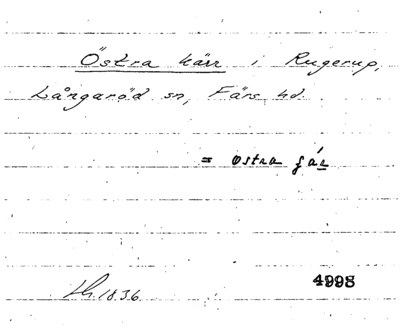 Östra kärr i Rugerup,
Långaröd sn, Färs hd.
= östra gár
1836 4998